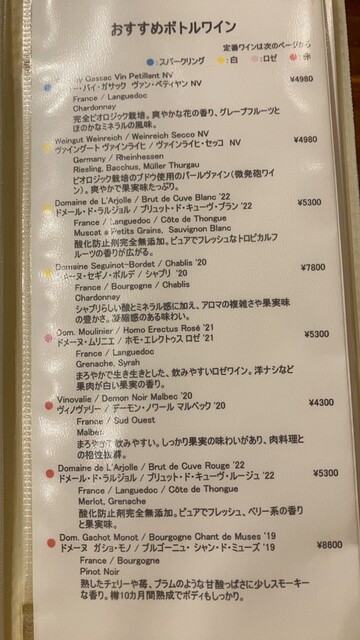 おすすめボトルワイン
定番ワインは次のページから
●:スパークリング ●:白 ●:ロゼ ●:赤
Gassac Vin Petillant NV ¥4980
・バイ・ガサック ヴァン・ペティヤン NV
France / Languedoc
Chardonnay
完全ビオロジック栽培。爽やかな花の香り、グレープフルーツと
ほのかなミネラルの風味。
Weingut Weinreich / Weinreich Secco NV ¥4980
ヴァイングート ヴァインライヒ / ヴァインライヒ・セッコ NV
Germany / Rheinhessen
Riesling, Bacchus, Müller Thurgau
ビオロジック栽培のブドウ使用のパールヴァイン(微発砲ワイ
ン)。爽やかで果実味たっぷり。
Domaine de L'Arjolle / Brut de Cuve Blanc '22 ¥5300
ドメール・ド・ラルジョル / ブリュット・ド・キューヴ・ブラン '22
France / Languedoc / Côte de Thongue
Muscat a Petits Grains, Sauvignon Blanc
酸化防止剤完全無添加。ピュアでフレッシュなトロピカルフ
ルーツの香りが広がる。
Domaine Seguinot-Bordet / Chablis '20 ¥7800
ーヌ・セギノ・ボルデ / シャブリ '20
France / Bourgogne / Chablis
Chardonnay
シャブリらしい酸とミネラル感に加え、アロマの複雑さや果実味
の豊かさ。凝縮感のある味わい。
Dom. Moulinier / Homo Erectus Rosé '21 ¥5300
ドメーヌ・ムリニエ / ホモ・エレクトゥス ロゼ '21
France / Languedoc
Grenache, Syrah
まろやかで生き生きとした、飲みやすいロゼワイン。洋ナシなど
果肉が白い果実の香り。
Vinovalie / Demon Noir Malbec '20 ¥4300
ヴィノヴァリー / デーモン・ノワール マルベック '20
France / Sud Ouest
Malbec
まろやかで飲みやすい。しっかり果実の味わいがあり、肉料理と
の相性抜群。
Domaine de L'Arjolle / Brut de Cuve Rouge '22 ¥5300
ドメール・ド・ラルジョル / ブリュット・ド・キューヴ・ルージュ '22
France / Languedoc / Côte de Thongue
Merlot, Grenache
酸化防止剤完全無添加。ピュアでフレッシュ、ベリー系の香り
と果実味。
Dom. Gachot Monot / Bourgogne Chant de Muses '19 ¥8600
ドメーヌ ガショ・モノ / ブルゴーニュ シャン・ド・ミューズ '19
France / Bourgogne
Pinot Noir
熟したチェリーや苺、プラムのような甘酸っぱさに少しスモーキー
な香り。樽10カ月間熟成でボディもしっかり。